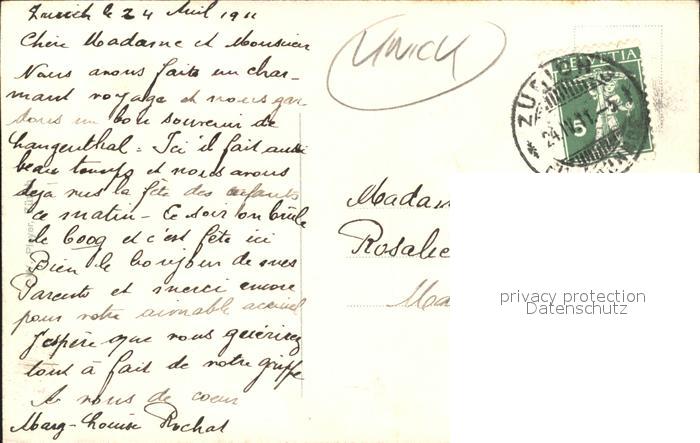 Zurich le 24 Avril 1911
Chère Madame et Monsieur
Nous avons fait un char-
mant voyage et nous gar-
dons un bon souvenir de
Langenthal. Ici il fait aussi
beau temps et nous avons
déjà vus la fête des enfants
ce matin - Ce soir on brûle
le Boog et c'est fête ici
Bien le bonjour de mes
Parents et merci encore
pour votre aimable accueil
J'espère que vous guérirez
tout à fait de votre grippe
A vous de coeur
Marg-Louise Rochat
UNICK
HELVETIA
5
ZÜRICH
24.IV.11.-5
Madam
Rosalie
Ma
privacy protection
Datenschutz